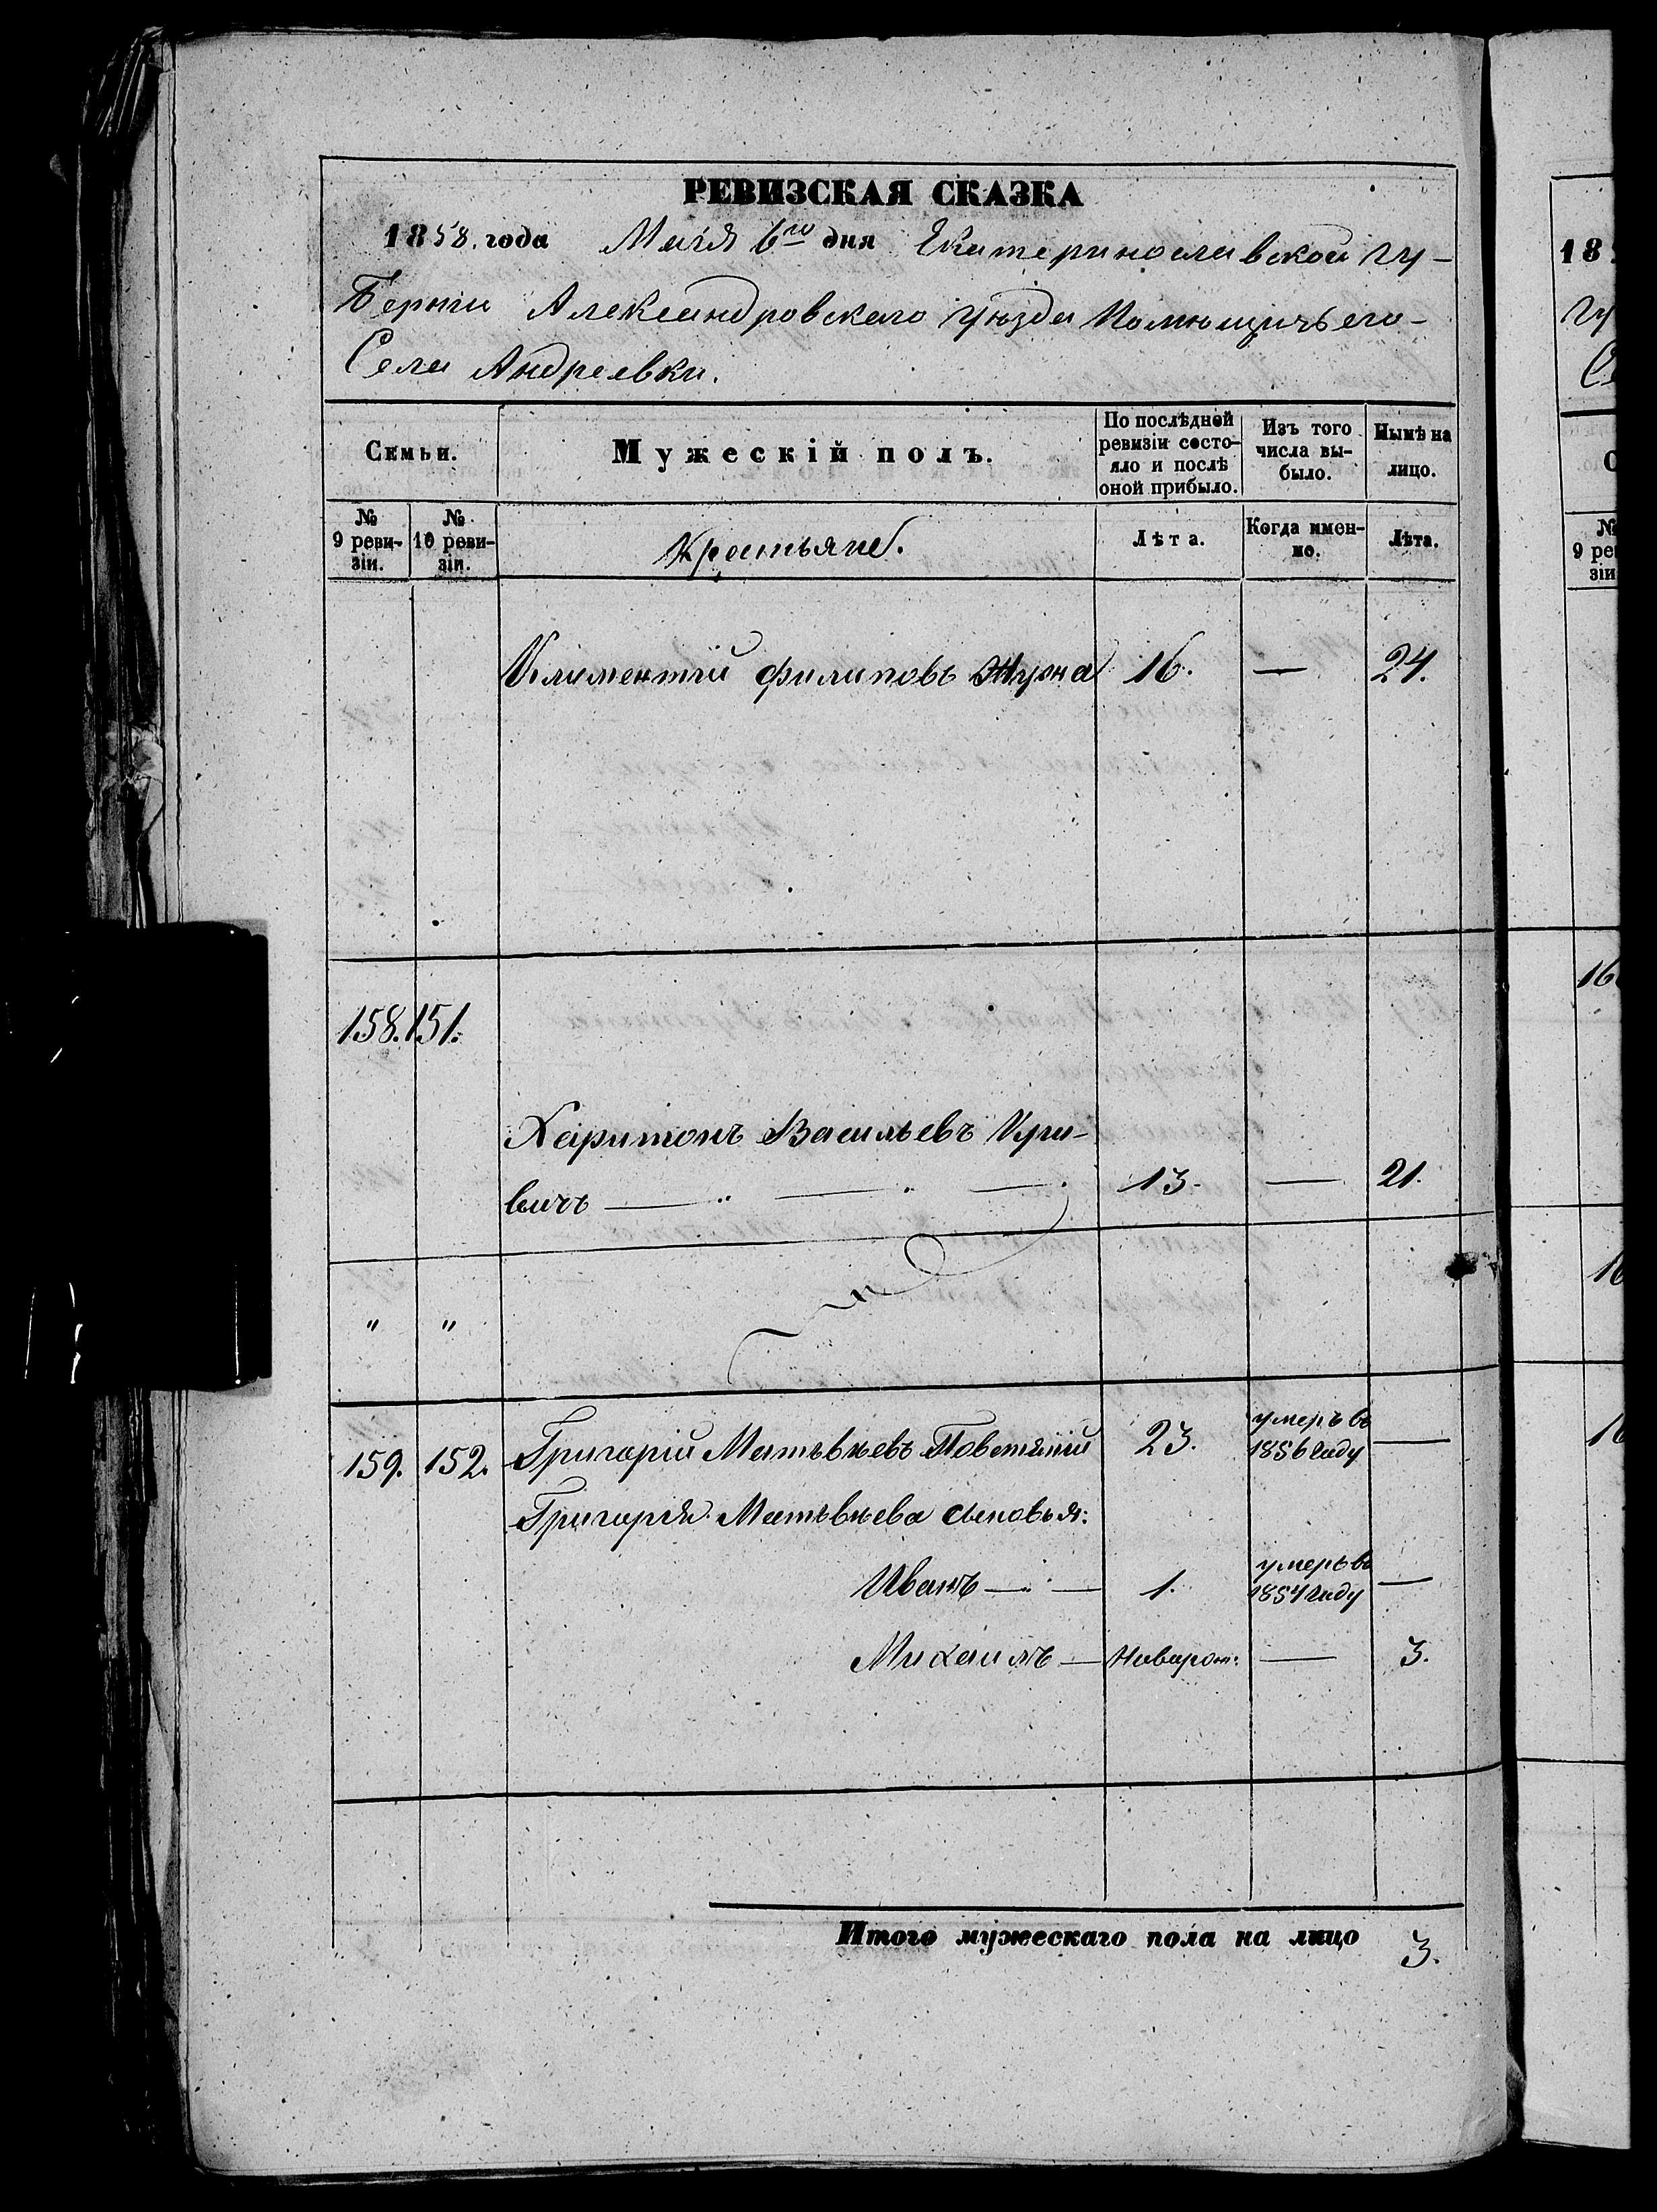 РЕВИЗСКАЯ СКАЗКА
1858. года Маія 6го дня Екатеринославской гу-
берніи Александровскаго уѣзда Помѣщичьего
Села Андреевки.
Семьи. Мужескій полъ. По послѣдней ревизіи состояло и послѣ оной прибыло. Изъ того числа выбыло. Нынѣ на лицо.
№ 9 ревизіи. № 10 ревизіи. Крестьяне. Лѣта. Когда именно. Лѣта.
Климентій Филиповъ 16. — 24.
158. 151.
Харитонъ Васильевъ Кри-
вичъ — " — " — 13. — 21.
" "
159. 152. Григорій Матвѣевъ 23. умеръ въ 1856 году —
Григорія Матвѣева сыновья:
Иванъ — " — 1. умеръ въ 1854 году —
Михаилъ — Новорож: — 3.
Итого мужескаго пола на лицо 3.
18
гу
С
№ 9 ре зіи
16
16
16